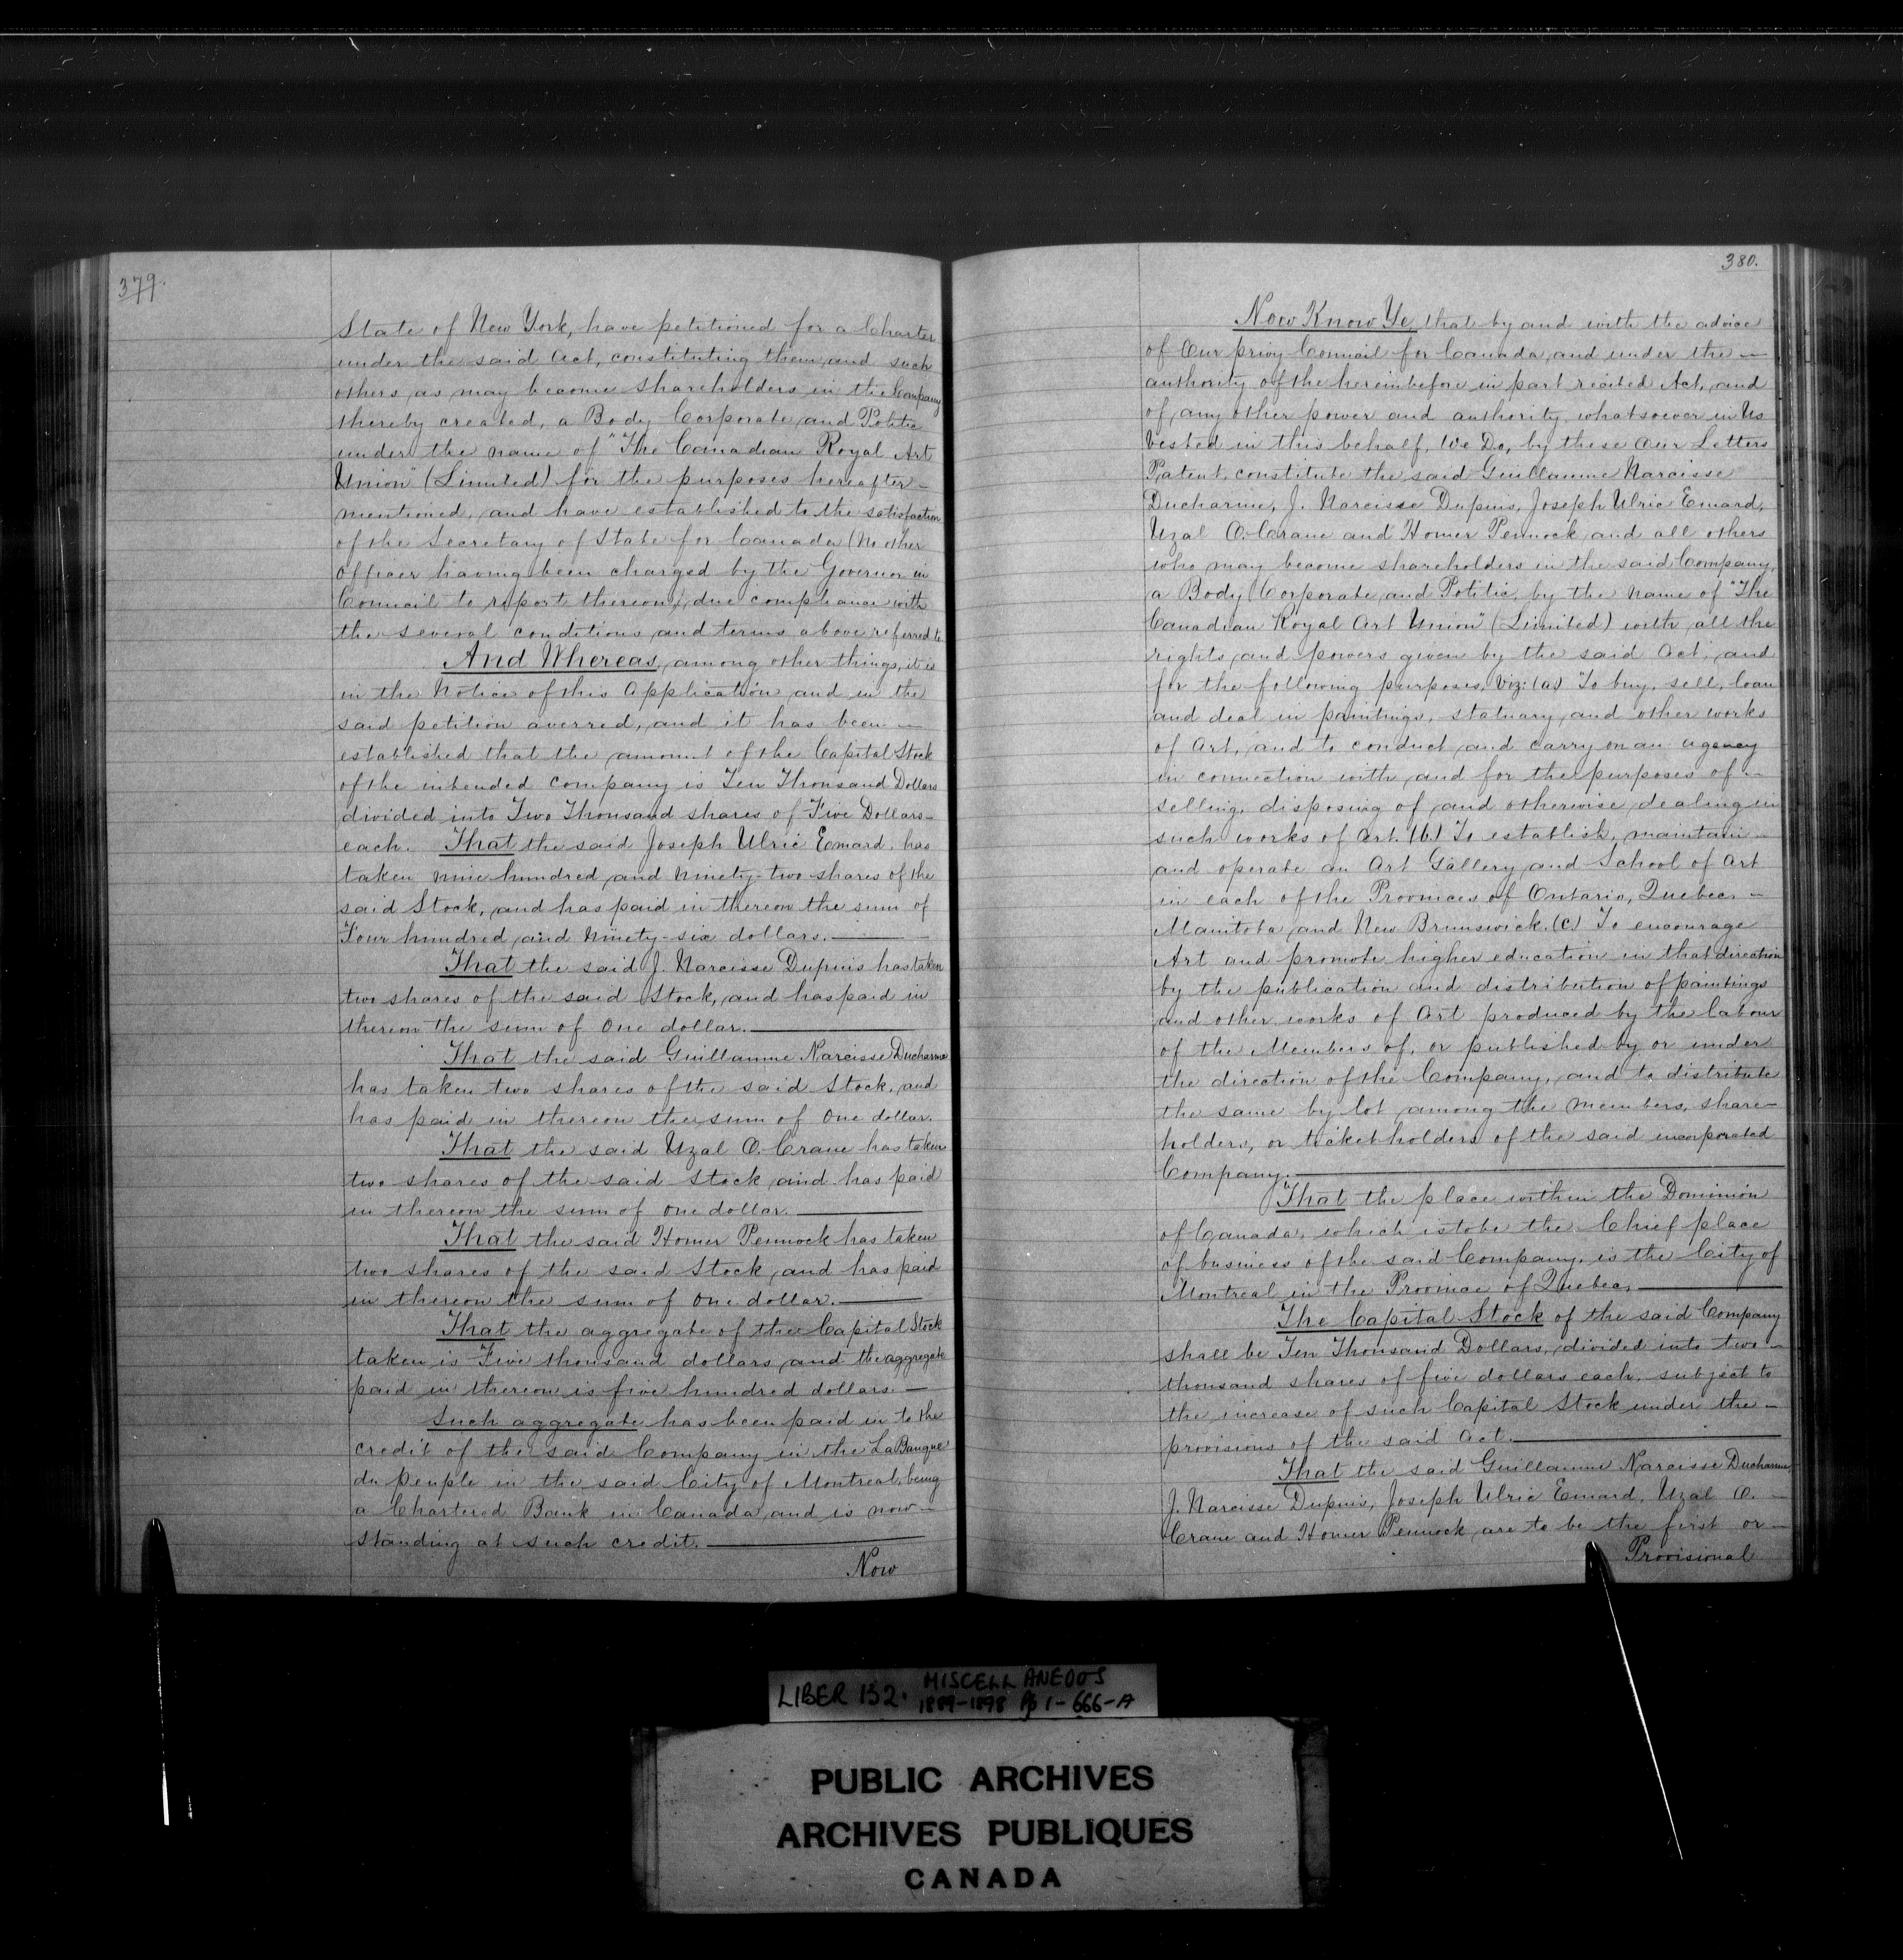 379.
State of New York, have petitioned for a Charter
under the said Act, constituting them and such
others as may become shareholders in the Company
thereby created, a Body Corporate and Politic
under the name of "The Canadian Royal Art
Union" (Limited) for the purposes hereafter -
mentioned, and have established to the satisfaction
of the Secretary of State for Canada (no other
officer having been charged by the Governor in
Council to report thereon), due compliance with
the several conditions and terms above referred to.
And Whereas, among other things, it is
in the Notice of this Application and in the
said petition averred, and it has been —
established that the amount of the Capital Stock
of the intended company is Ten Thousand Dollars
divided into Two Thousand shares of Five Dollars -
each. That the said Joseph Ulric Emard, has
taken nine hundred and ninety-two shares of the
said Stock, and has paid in thereon the sum of
Four hundred and ninety-six dollars. —
That the said J. Narcisse Dupuis has taken
two shares of the said Stock, and has paid in
thereon the sum of one dollar. —
That the said Guillaume Narcisse Ducharme
has taken two shares of the said Stock, and
has paid in thereon the sum of one dollar.
That the said Uzal O. Crane has taken
two shares of the said Stock and has paid
in thereon the sum of one dollar. —
That the said Homer Pennock has taken
two shares of the said Stock, and has paid
in thereon the sum of one dollar. —
That the aggregate of the Capital Stock
taken is Five thousand dollars and the aggregate
paid in thereon is five hundred dollars. —
Such aggregate has been paid in to the
credit of the said Company in the La Banque
du peuple in the said City of Montreal, being
a Chartered Bank in Canada, and is now —
standing at such credit. —
Now
380.
Now Know Ye, that by and with the advice
of Our privy Council for Canada, and under the —
authority of the hereinbefore in part recited Act, and
of any other power and authority whatsoever in Us
Vested in this behalf, We Do, by these Our Letters
Patent, constitute the said Guillaume Narcisse
Ducharme, J. Narcisse Dupuis, Joseph Ulric Emard,
Uzal O. Crane and Homer Pennock and all others
who may become shareholders in the said Company,
a Body Corporate and Politic, by the name of "The
Canadian Royal Art Union" (Limited) with all the
rights and powers given by the said Act, and
for the following purposes, Viz: (a) To buy, sell, loan
and deal in paintings, statuary, and other works
of Art, and to conduct and carry on an agency
in connection with and for the purposes of —
selling, disposing of and otherwise dealing in
such works of Art. (b) To establish, maintain —
and operate an Art Gallery and School of Art
in each of the Provinces of Ontario, Quebec, —
Manitoba and New Brunswick. (c) To encourage
Art and promote higher education in that direction
by the publication and distribution of paintings
and other works of Art produced by the labour
of the Members of, or published by or under
the direction of the Company, and to distribute
the same by lot among the members, share-
holders, or ticket holders of the said incorporated
Company. —
That the place within the Dominion
of Canada, which is to be the Chief place
of business of the said Company, is the City of
Montreal in the Province of Quebec, —
The Capital Stock of the said Company
shall be Ten Thousand Dollars, divided into two —
thousand shares of five dollars each, subject to
the increase of such Capital Stock under the —
provisions of the said Act. —
That the said Guillaume Narcisse Ducharme,
J. Narcisse Dupuis, Joseph Ulric Emard, Uzal O. —
Crane and Homer Pennock, are to be the first or —
Provisional
LIBER 132. MISCELLANEOUS
1889-1898 Pp 1-666-A
PUBLIC ARCHIVES
ARCHIVES PUBLIQUES
CANADA